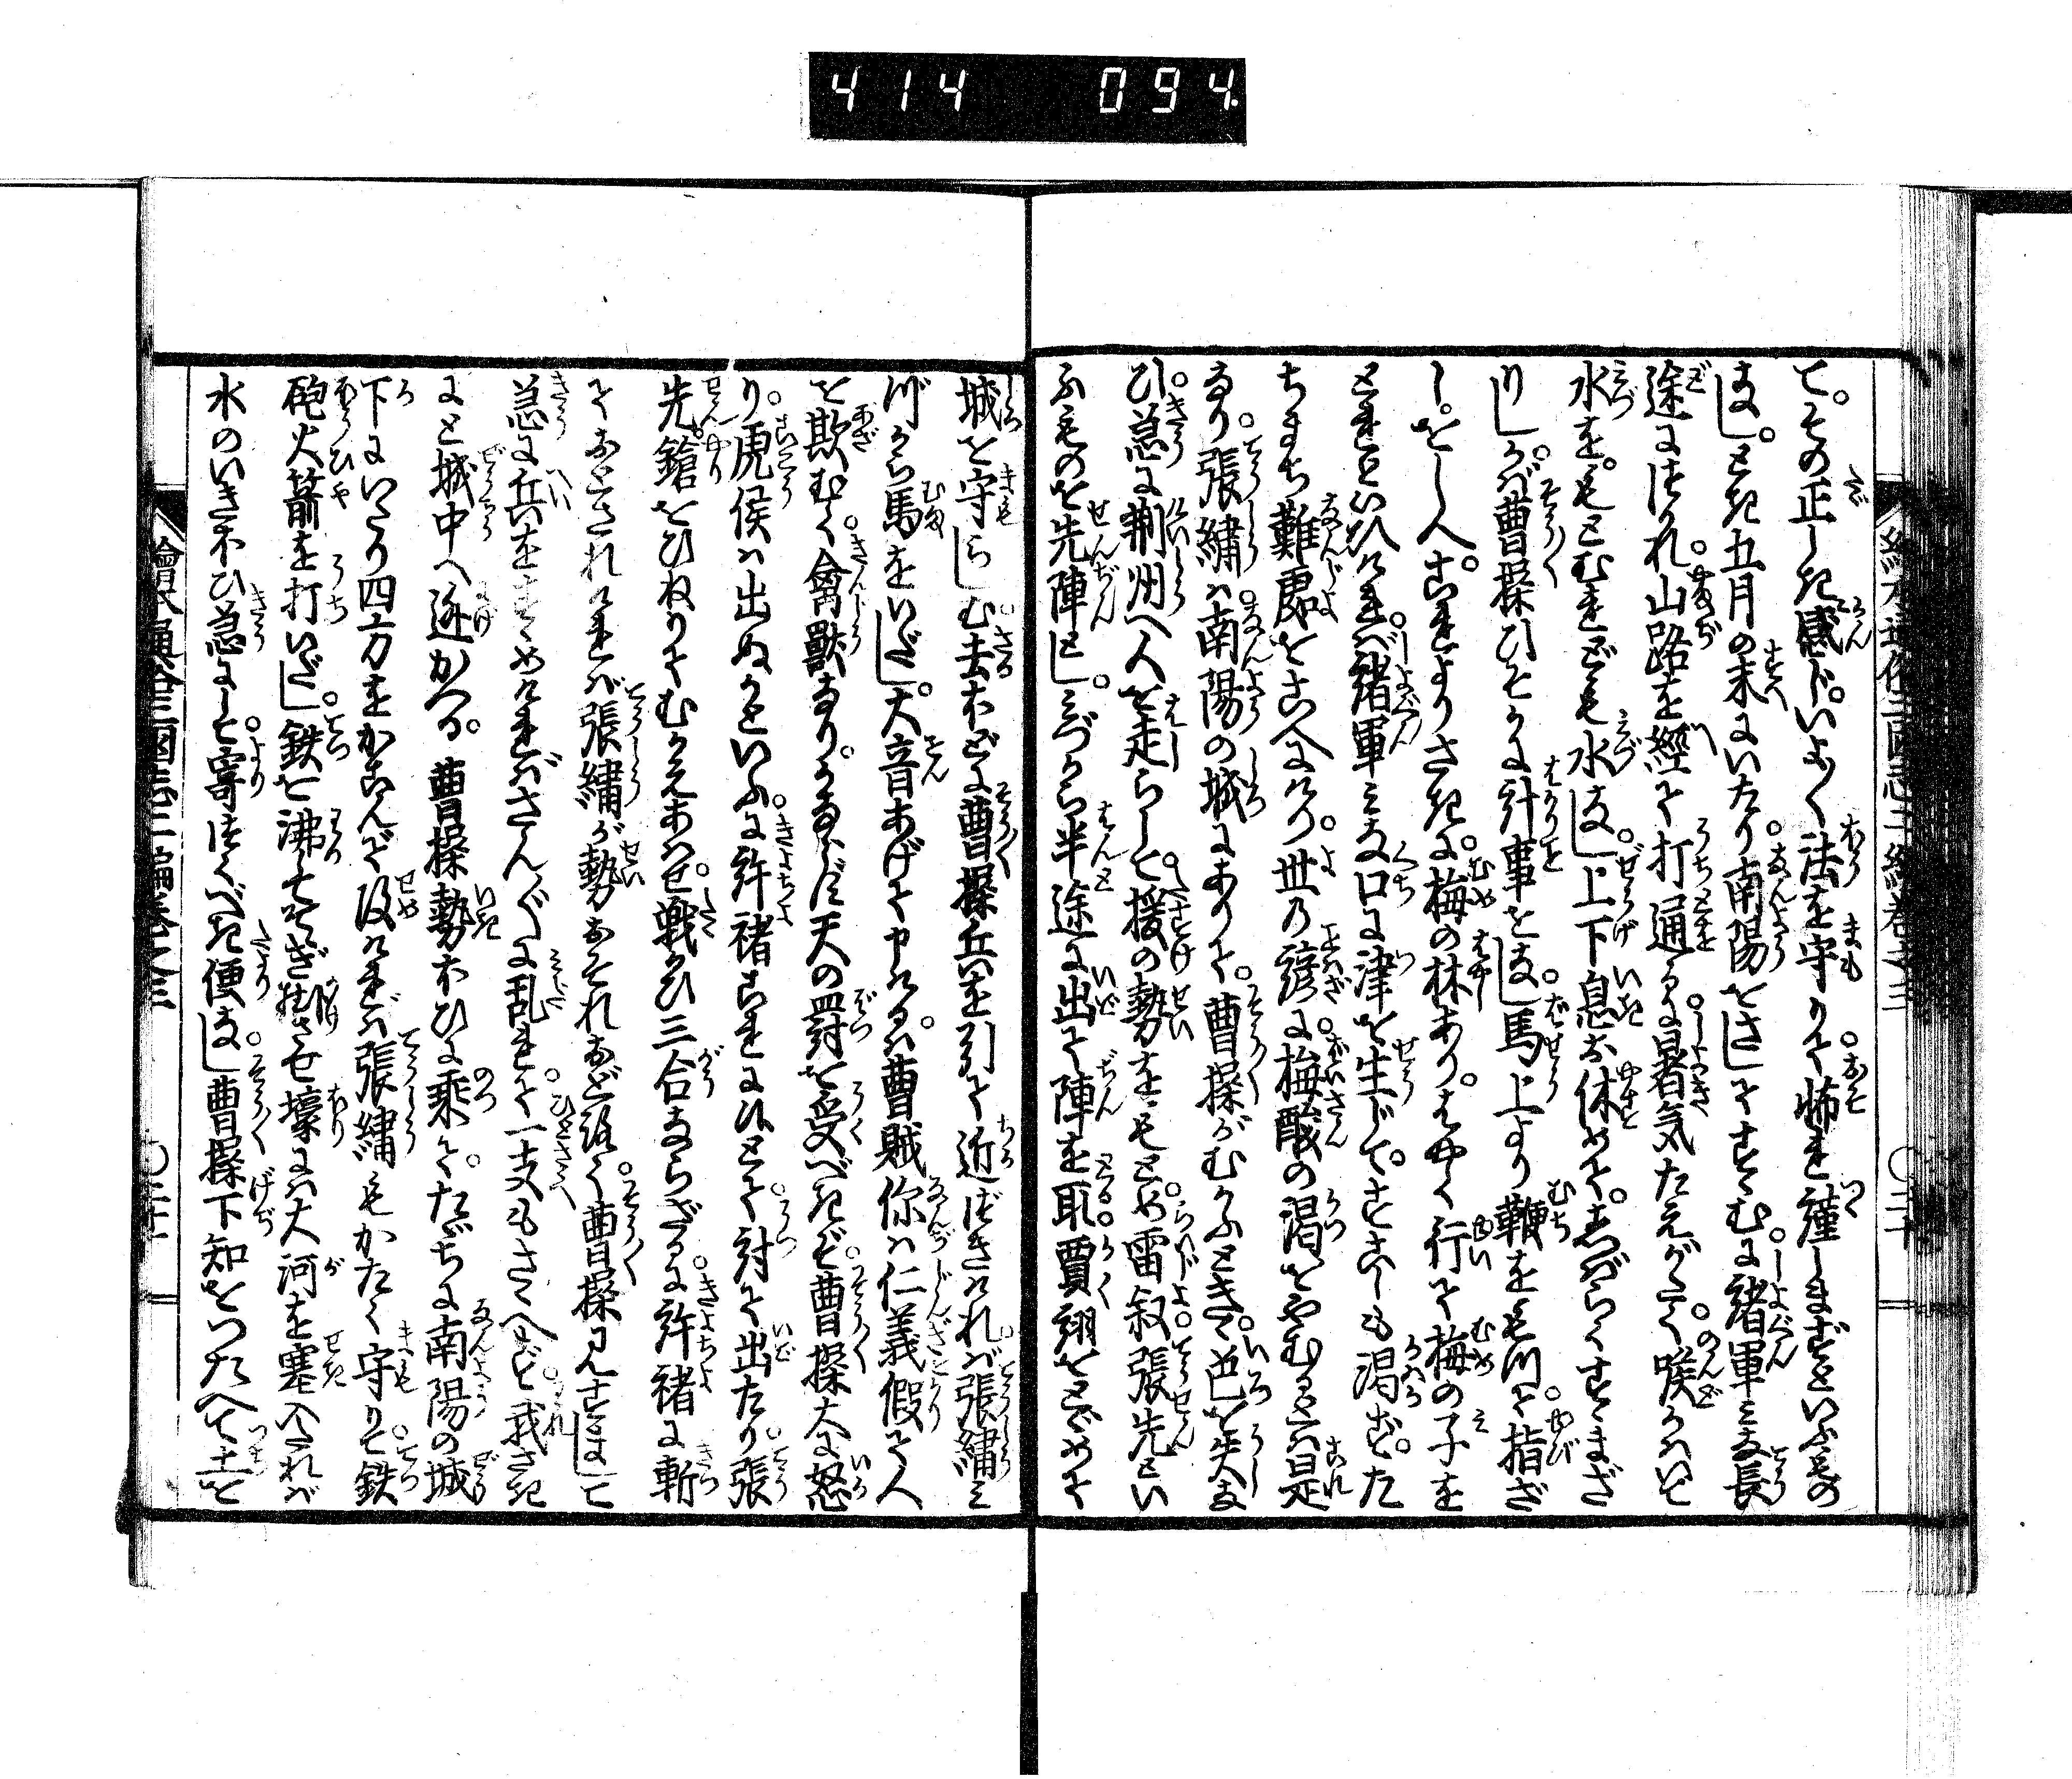 414 094.
て。その正しきに感じ。いよ〳〵法を守りて。怖れ謹しまずといふもの
なし。とき五月の末にいたり。南陽をさしてすゝむに。諸軍みな長
途につかれ。山路を經て打通るに。暑気たえがたく。喉かはいて
水を。もとむれども水なし。上下息な休めそ。しばらくすゝまざ
りしが。曹操ひそかに計事をなし。馬上より鞭をもつて。指ざ
し。をしへ。これよりさきに。梅の林あり。はやく行て梅の子を
とれといひければ。諸軍みな口に津を生じて。すこしも渇ず。た
ちまち難處をこへにけり。世の諺に。梅酸の渇をやむるとは是
なり。張繍は。南陽の城にありて。曹操がむかふときゝ。色を失な
ひ。急に荊州へ人を走らして。援の勢をもとめ。雷叙。張先とい
ふものを先陣とし。みづから半途に出て陣を取。賈詡をとゞめて
城を守らしむ。去ほどに曹操兵を引て近づきければ。張繍み
づから馬をいだし。大音あげて申けるは。曹賊你は仁義假て人
を欺むく。禽獸なり。かならず天の罸を受べきぞ。曹操大に怒
り。虎侯は出ぬかといふに。許褚これにありとて。討て出たり。張
先鎗をひねりてむかえあはせ。戰かひ三合ならざるに。許褚に斬
ておとされければ。張繍が勢おそれおどろく。曹操すまして
急に兵をすゝめければ。さん〴〵に乱れて。一支もさゝへず。我さき
にと城中へ逃かへる。曹操勢ひに乗て。たゞちに南陽の城
下にいたり四方をかこんで。攻ければ。張繍もかたく守りて。鉄
砲火箭を打いだし。鉄を沸してそゝぎかけさせ壕には大河を塞入たれば
水のいきほひ急にして。寄つくべき便なし。曹操下知をつたへて土を
繪本通俗三國志二編卷之三
〇二十
繪本通俗三國志二編卷之三
〇二十一